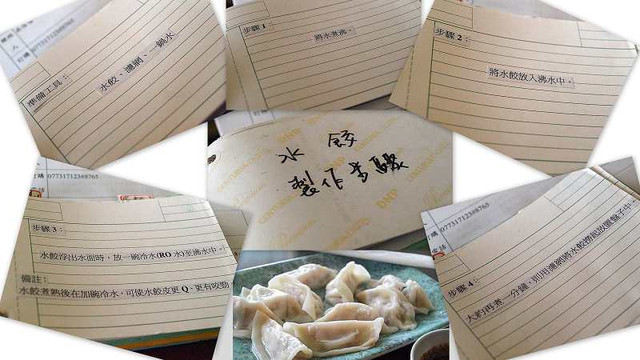 準備工具：
水餃、濾網、一鍋水
步驟 1：
將水煮沸。
步驟 2：
將水餃放入沸水中。
水餃
製作步驟
BNP
07731712398765
步驟 3：
水餃浮出水面時，放一碗冷水(RO 水)至沸水中。
備註：
水餃煮熟後在加碗冷水，可使水餃皮更 Q、更有咬勁
07731712398765
步驟 4：
大約再煮一分鐘，則用濾網將水餃撈起放置盤子中。